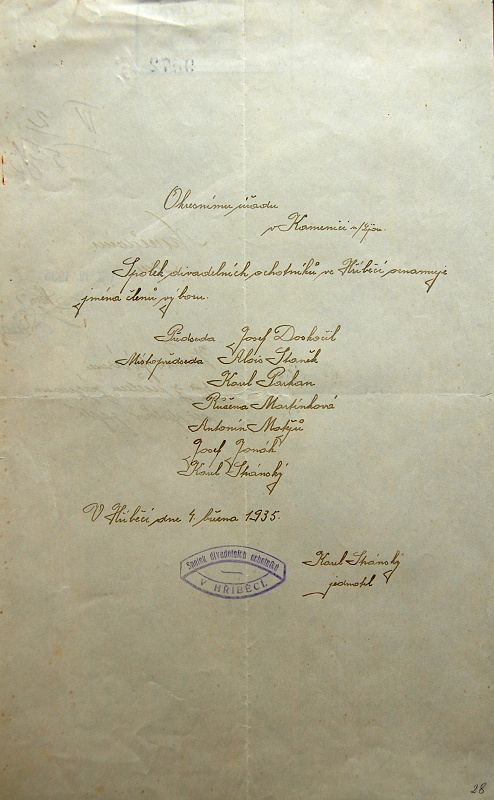 Okresnímu úřadu
v Kamenici n/Lipou.
Spolek divadelních ochotníků ve Hříběcí oznamuje
jména členů výboru.
Předseda Josef Doskočil
Místopředseda Alois Staněk
Karel Parkan
Růžena Martínková
Antonín Matějů
Josef Jonák
Karel Stránský
V Hříběcí dne 4. března 1935.
Spolek divadelních ochotníků
V HŘÍBĚCÍ.
Karel Stránský
jednatel
28